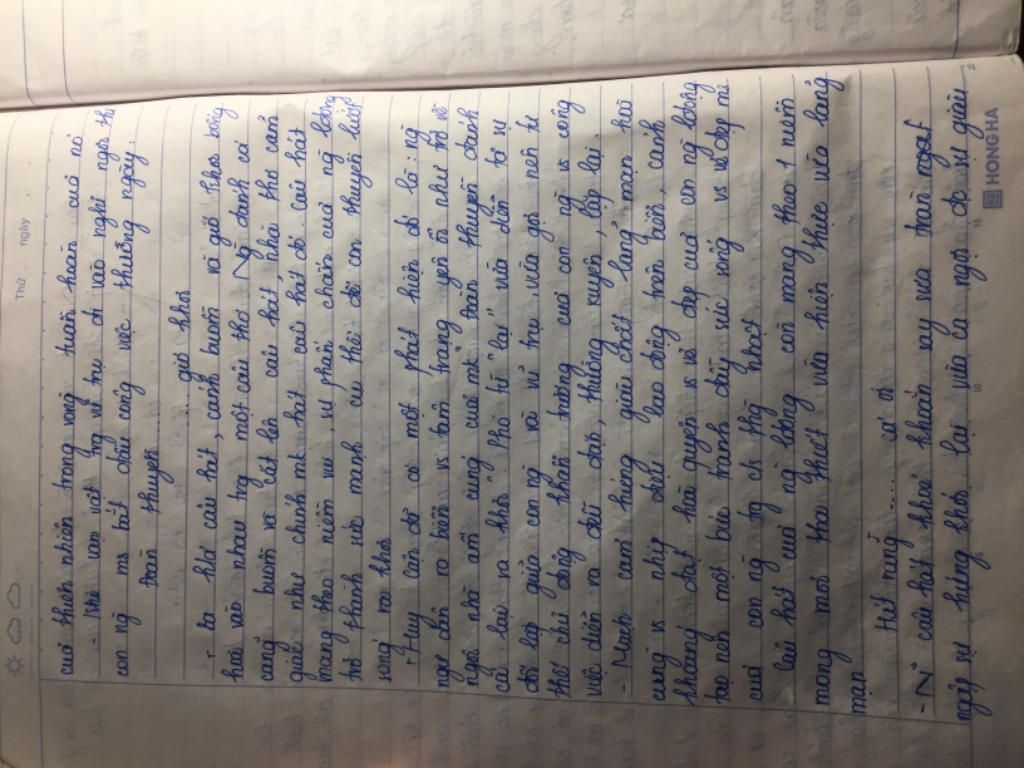 Thứ ngày
của thiên nhiên trong vòng tuần hoàn của nó
- Khi vạn vật trg vũ trụ đi vào nghỉ ngơi thì
con ng ms bắt đầu công việc thường ngày.
Đoàn thuyền ........... gió khơi
ta thơ câu hát, cánh buồm và gió khơi bỗng
hoà vào nhau trg một câu thơ. Ng dánh cá
căng buồm và cất lên câu hát, nhà thơ cảm
giác như chính mk hát câu hát đó. Câu hát
mang theo niềm vui sự phấn chấn của ng lđộng
trở thành sức mạnh cụ thể để con thuyền lướt
sóng ra khơi
Huy Cận đã có một phát hiện đó là: ng
ngư dân ra biển vs tâm trạng yên ổn như trở về
ngôi nhà ấm cúng của mk, đoàn thuyền đánh
cá lại ra khơi. Phó từ "lại" vừa diễn tả sự
đối lập giữa con ng và vũ trụ, vừa gợi nên tư
thế chủ động, khẩn trương của con ng vs công
việc diễn ra đều đặn, thường xuyên, lặp lại.
- Mạch cảm hứng giàu chất lãng mạn hoà
cùng vs nhịp điệu lao động trên biển, cảnh
khoáng đạt hoà quyện vs vẻ đẹp của con ng lđộng
tạo nên một bức tranh đầy sức sống vs vẻ đẹp mê
của con ng trg ch thg nhạc!
Câu hát của ng lđộng còn mang theo niềm
mong mỏi tha thiết vừa hiện thực vừa lãng
mạn
Hát rằng: ....... cá ơi
- N~ câu hát khoẻ khoắn say sưa tràn ngập
ngây sự hứng khởi lại vừa ca ngợi đó sự giàu
HONG HA